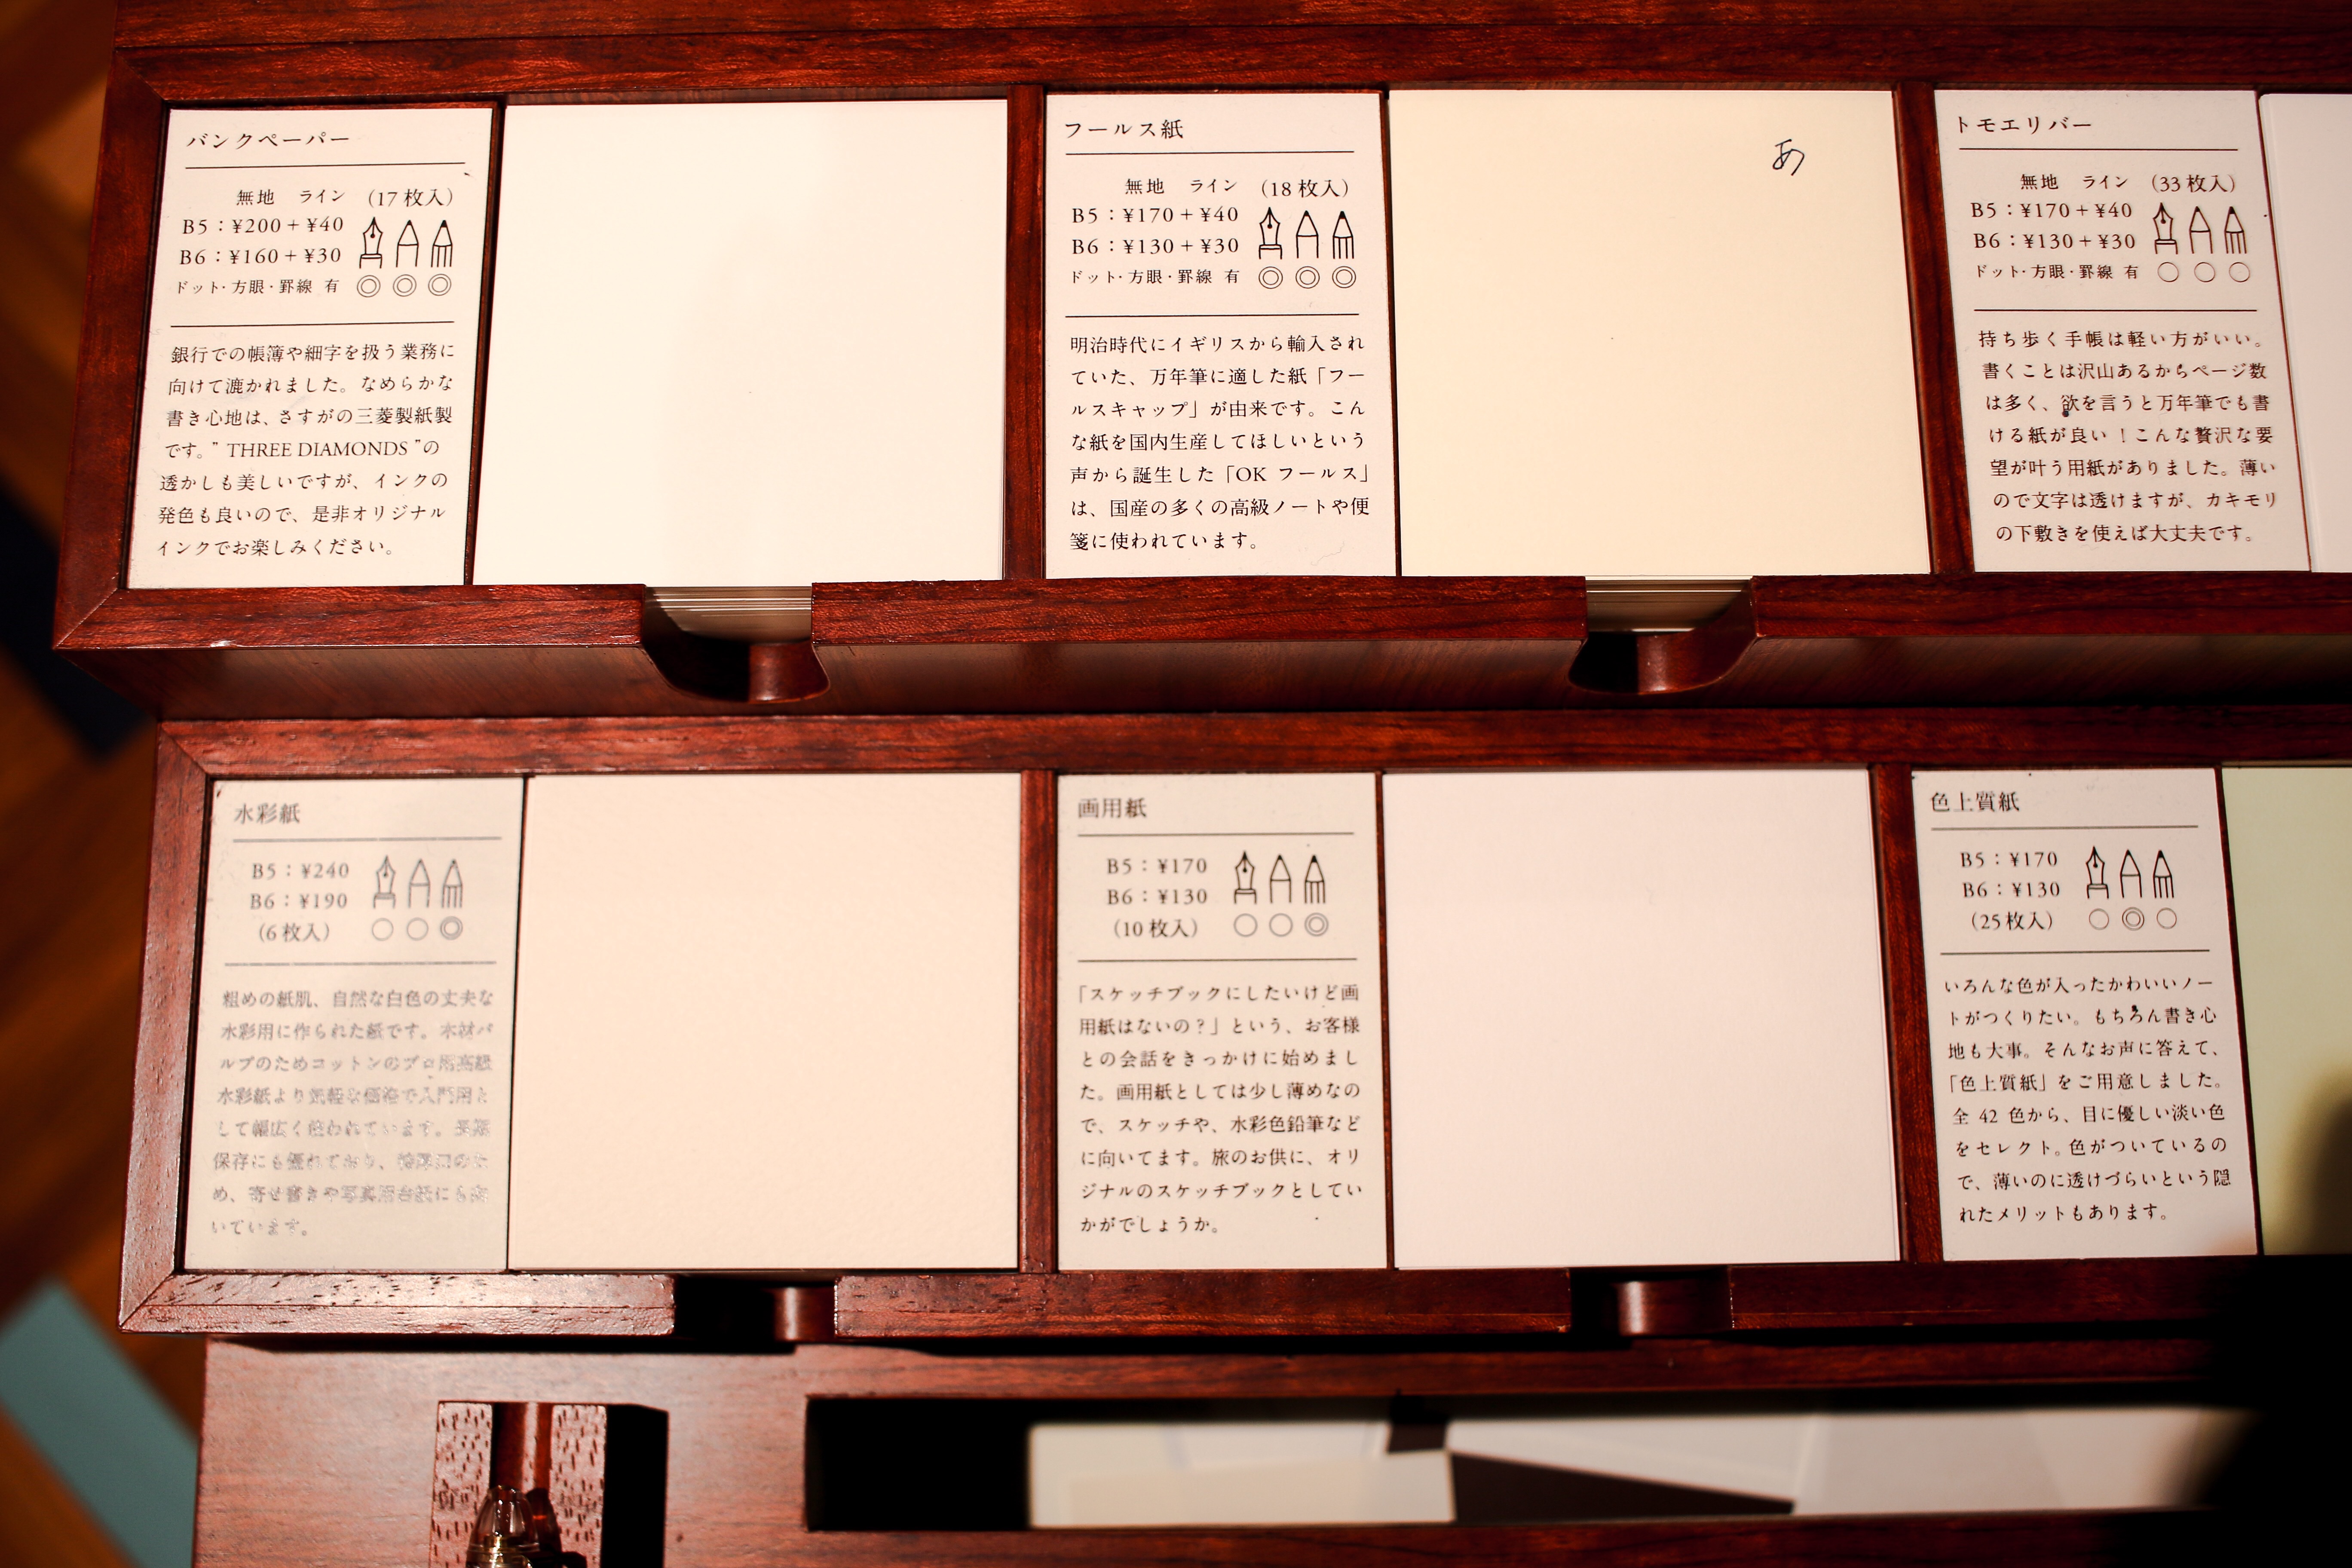 バンクペーパー
無地 ライン (17枚入)
B5：¥200+¥40
B6：¥160+¥30
ドット・方眼・罫線 有 ◎ ◎ ◎
銀行での帳簿や細字を扱う業務に
向けて漉かれました。なめらかな
書き心地は、さすがの三菱製紙製
です。” THREE DIAMONDS ”の
透かしも美しいですが、インクの
発色も良いので、是非オリジナル
インクでお楽しみください。
フールス紙
無地 ライン (18枚入)
B5：¥170+¥40
B6：¥130+¥30
ドット・方眼・罫線 有 ◎ ◎ ◎
明治時代にイギリスから輸入され
ていた、万年筆に適した紙「フー
ルスキャップ」が由来です。こん
な紙を国内生産してほしいという
声から誕生した「OK フールス」
は、国産の多くの高級ノートや便
箋に使われています。
あ
トモエリバー
無地 ライン (33枚入)
B5：¥170+¥40
B6：¥130+¥30
ドット・方眼・罫線 有 ○ ○ ○
持ち歩く手帳は軽い方がいい。
書くことは沢山あるからページ数
は多く、欲を言うと万年筆でも書
ける紙が良い！こんな贅沢な要
望が叶う用紙がありました。薄い
ので文字は透けますが、カキモリ
の下敷きを使えば大丈夫です。
水彩紙
B5：¥240
B6：¥190
(6枚入) ○ ○ ◎
粗めの紙肌、自然な白色の丈夫な
水彩用に作られた紙です。木材パ
ルプのためコットンのプロ用高級
水彩紙より気軽な価格で入門用と
して幅広く使われています。長期
保存にも優れており、
め、寄せ書きや写真用台紙にも向
いています。
画用紙
B5：¥170
B6：¥130
(10枚入) ○ ○ ◎
「スケッチブックにしたいけど画
用紙はないの？」という、お客様
との会話をきっかけに始めまし
た。画用紙としては少し薄めなの
で、スケッチや、水彩色鉛筆など
に向いてます。旅のお供に、オリ
ジナルのスケッチブックとしてい
かがでしょうか。
色上質紙
B5：¥170
B6：¥130
(25枚入) ○ ◎ ○
いろんな色が入ったかわいいノー
トがつくりたい。もちろん書き心
地も大事。そんなお声に答えて、
「色上質紙」をご用意しました。
全 42 色から、目に優しい淡い色
をセレクト。色がついているの
で、薄いのに透けづらいという隠
れたメリットもあります。